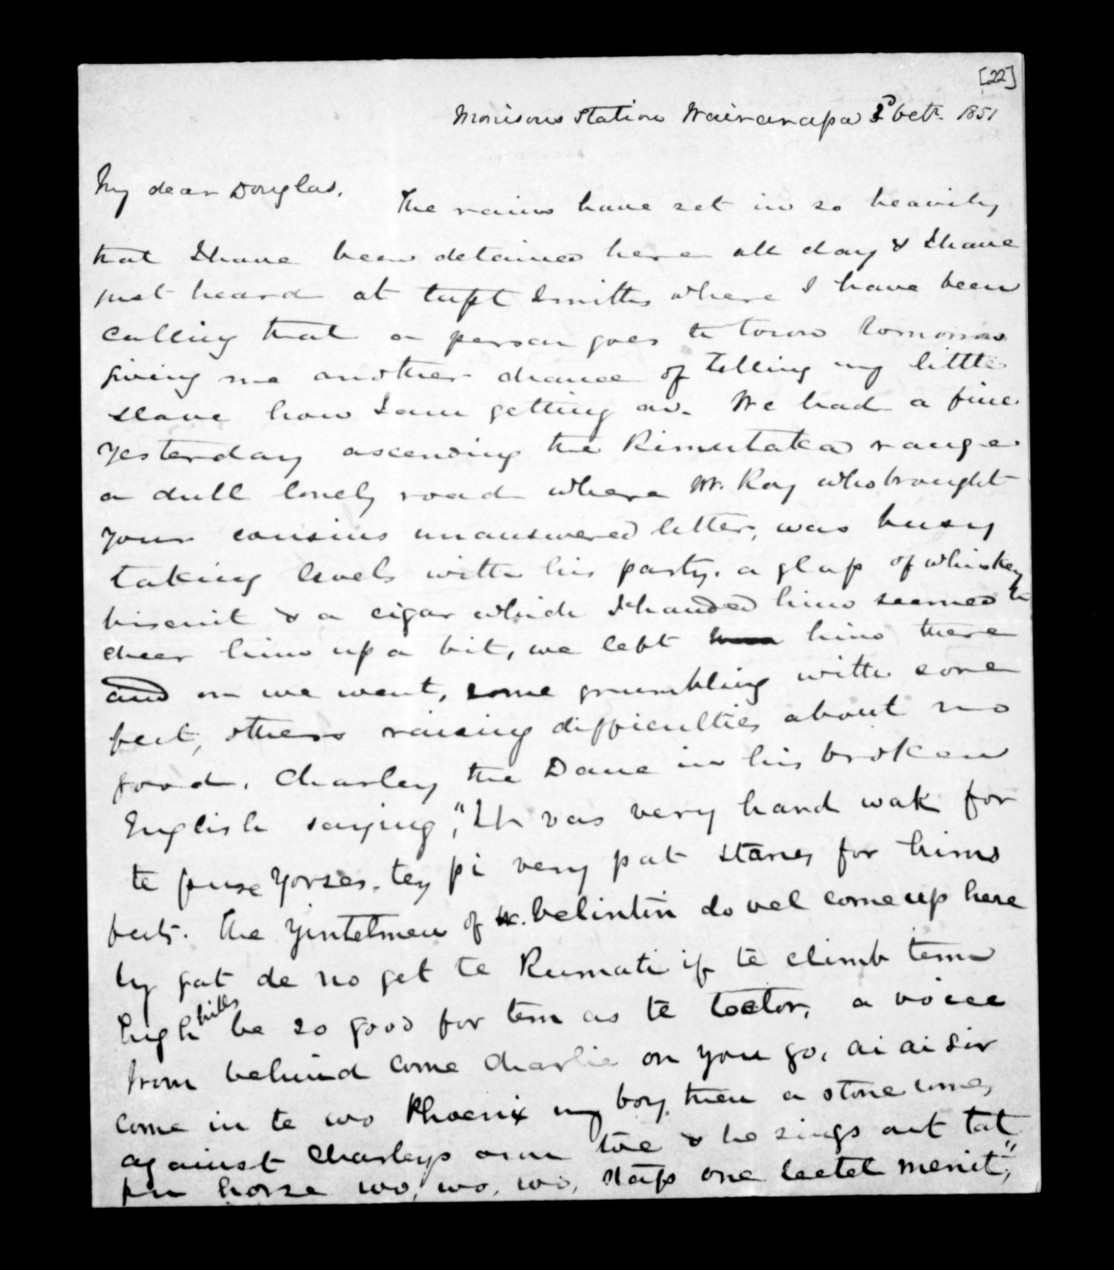 [22]
Morisons Station Wairarapa 3d Octr. 1851
My dear Douglas.
The rains have set in so heavily
that I have been detained here all day & I have
just heard at Cupt Smiths where I have been
calling that a person goes to town tomorrow
giving me another chance of telling my little
slave how I am getting on. We had a fine
yesterday ascending the Rimutaka range
a dull lonely road where Mr. Roy who brought
your cousins unanswered letter, was busy
taking levels with his party. a glass of whiskey
biscuit & a cigar which I handed him seemed to
cheer him up a bit, we left him there
and on we went, some grumbling with sore
feet, others raising difficulties about no
food. Charley the Dane in his broken
English saying, "It vas very hard wak for
te puse Yorses, tey pi very pat stanes for hims
feets. The yintelmen of Velintin do vel come up here
by gat de no get te Rumati if te climb tem
high hills be so good for tem as te toctor, a voice
from behind come Charlie on you go, ai ai sir
come in te wo Phoenix my boy, then a stone comes
against Charleys own toe & he sings out tat
pu horse wo, wo, wo, stap one leetel menit",